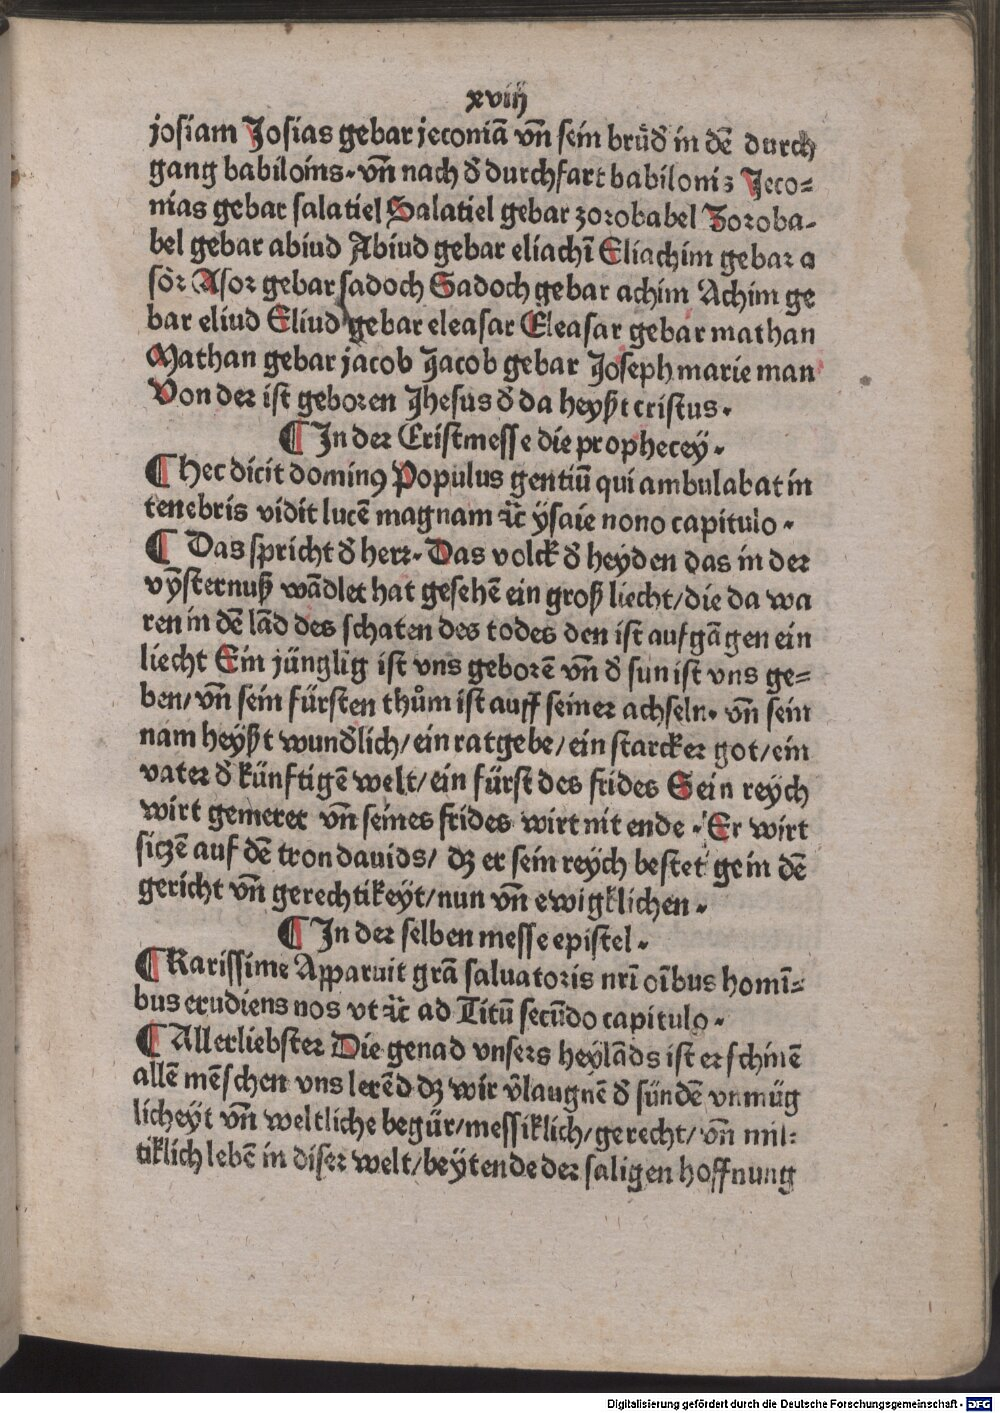 xviij
josiam Josias gebar jeconiā vñ sein brüd̕ in dē durch
gang babiloins. vñ nach d̕ durchfart babilonis Jeco=
nias gebar salatiel Salatiel gebar zorobabel Zoroba-
bel gebar abiud Abiud gebar eliachī Eliachim gebar a
sör Asor gebar sadoch Sadoch gebar achim Achim ge
bar eliud Eliud gebar eleasar Eleasar gebar mathan
Mathan gebar jacob Jacob gebar Joseph marie man
Von der ist geboren Jhesus d̕ da heyßt cristus.
¶ In der Cristmesse die prophecey.
¶ Hec dicit dominꝰ Populus gentiū qui ambulabat in
tenebris vidit lucē magnam ꝛc̈ ysaie nono capitulo.
¶ Das spricht d̕ herr. Das volck d̕ heyden das in der
vÿsternuß wādlet hat gesehē ein groß liecht/die da wa
ren in dē lād des schaten des todes den ist aufgāgen ein
liecht Ein jünglig ist vns geborē vñ d̕ sun ist vns ge=
ben/vñ sein fürsten thům ist auff seiner achseln. vñ sein
nam heyßt wund̕lich/ein ratgebe/ein starcker got/ein
vater d̕ künftigē welt/ein fürst des frides Sein reÿch
wirt gemeret vñ seines frides wirt nit ende. Er wirt
siczē auf dē tron dauids/ dz er sein reÿch bestetige in dē
gericht vñ gerechtikeÿt/nun vñ ewigklichen.
¶ In der selben messe epistel.
¶ Karissime Apparuit grā saluatoris nrī oībus homī=
bus erudiens nos vt ꝛc̈ ad Titū secūdo capitulo.
¶ Allerliebster Die genad vnsers heÿlāds ist erschinē
allē mēschen vns lerēd dz wir v̄laugnē d̕ sündē vnmüg
licheÿt vñ weltliche begür/messiklich/gerecht/vñ mil=
tiklich lebē in diser welt/beÿtende der saligen hoffnung
Digitalisierung gefördert durch die Deutsche Forschungsgemeinschaft - DFG